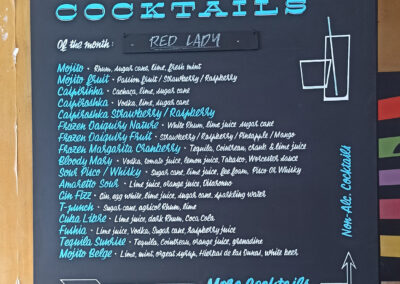 COCKTAILS
Of the month: RED LADY
Mojito • Rhum, sugar cane, lime, fresh mint
Mojito fruit • Passion fruit / Strawberry / Raspberry
Caïpirinha • Cachaça, lime, sugar cane
Caïpiroshka • Vodka, lime, sugar cane
Caïpiroshka Strawberry / Raspberry
Frozen Daïquiry Nature • White Rhum, lime juice, sugar cane
Frozen Daïquiry Fruit • Strawberry / Raspberry / Pineapple / Mango
Frozen Margarita Cranberry • Tequila, Cointreau, cranb & lime juice
Bloody Mary • Vodka, tomato juice, lemon juice, Tabasco, Worcester sauce
Sour Pisco / Whisky • Sugar cane, lime juice, fee foam, Pisco OR Whisky
Amaretto Sour • Lime juice, orange juice, Disaronno
Gin Fizz • Gin, egg white, lime juice, sugar cane, sparkling water
T-punch • Sugar cane, agricol Rhum, lime
Cuba Libre • Lime juice, dark Rhum, Coca Cola
Fushia • Lime juice, Vodka, Sugar cane, raspberry juice
Tequila Sunrise • Tequila, Cointreau, orange juice, grenadine
Mojito Belge • Lime, mint, orgeat syrup, Hierbas de las Dunas, white beer
More Cocktails
Non-Alc. Cocktails